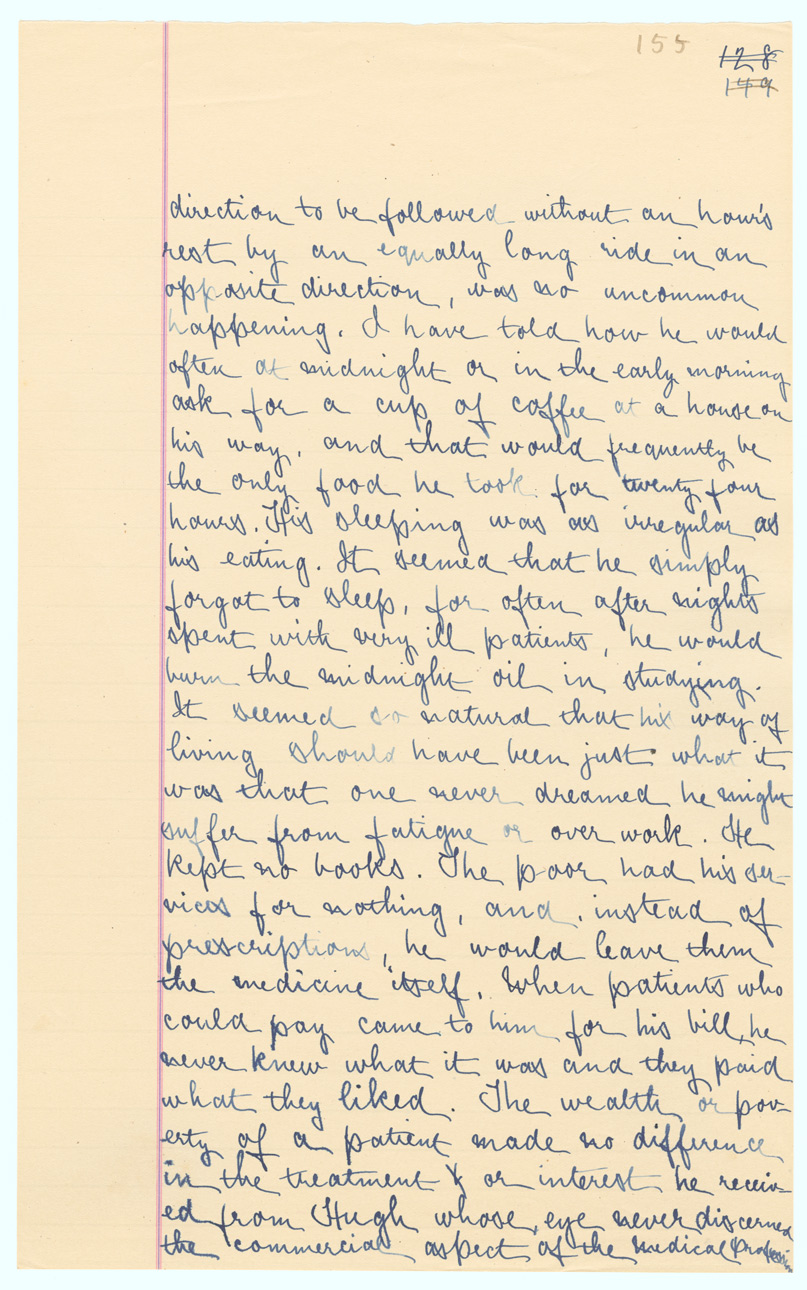 155
128
149
direction to be followed without an hour's
rest by an equally long ride in an
opposite direction, was no uncommon
happening. I have told how he would
often at midnight or in the early morning
ask for a cup of coffee at a house on
his way, and that would frequently be
the only food he took for twenty four
hours. His sleeping was as irregular as
his eating. It seemed that he simply
forgot to sleep, for often after nights
spent with very ill patients, he would
burn the midnight oil in studying.
It seemed so natural that his way of
living should have been just what it
was that one never dreamed he might
suffer from fatigue or over work. He
kept no books. The poor had his ser-
vices for nothing, and, instead of
prescriptions, he would leave them
the medicine itself. When patients who
could pay came to him for his bill, he
never knew what it was and they paid
what they liked. The wealth or pov-
erty of a patient made no difference
in the treatment or interest he receiv-
ed from Hugh whose eye never discerned
the commercial aspect of the medical profession